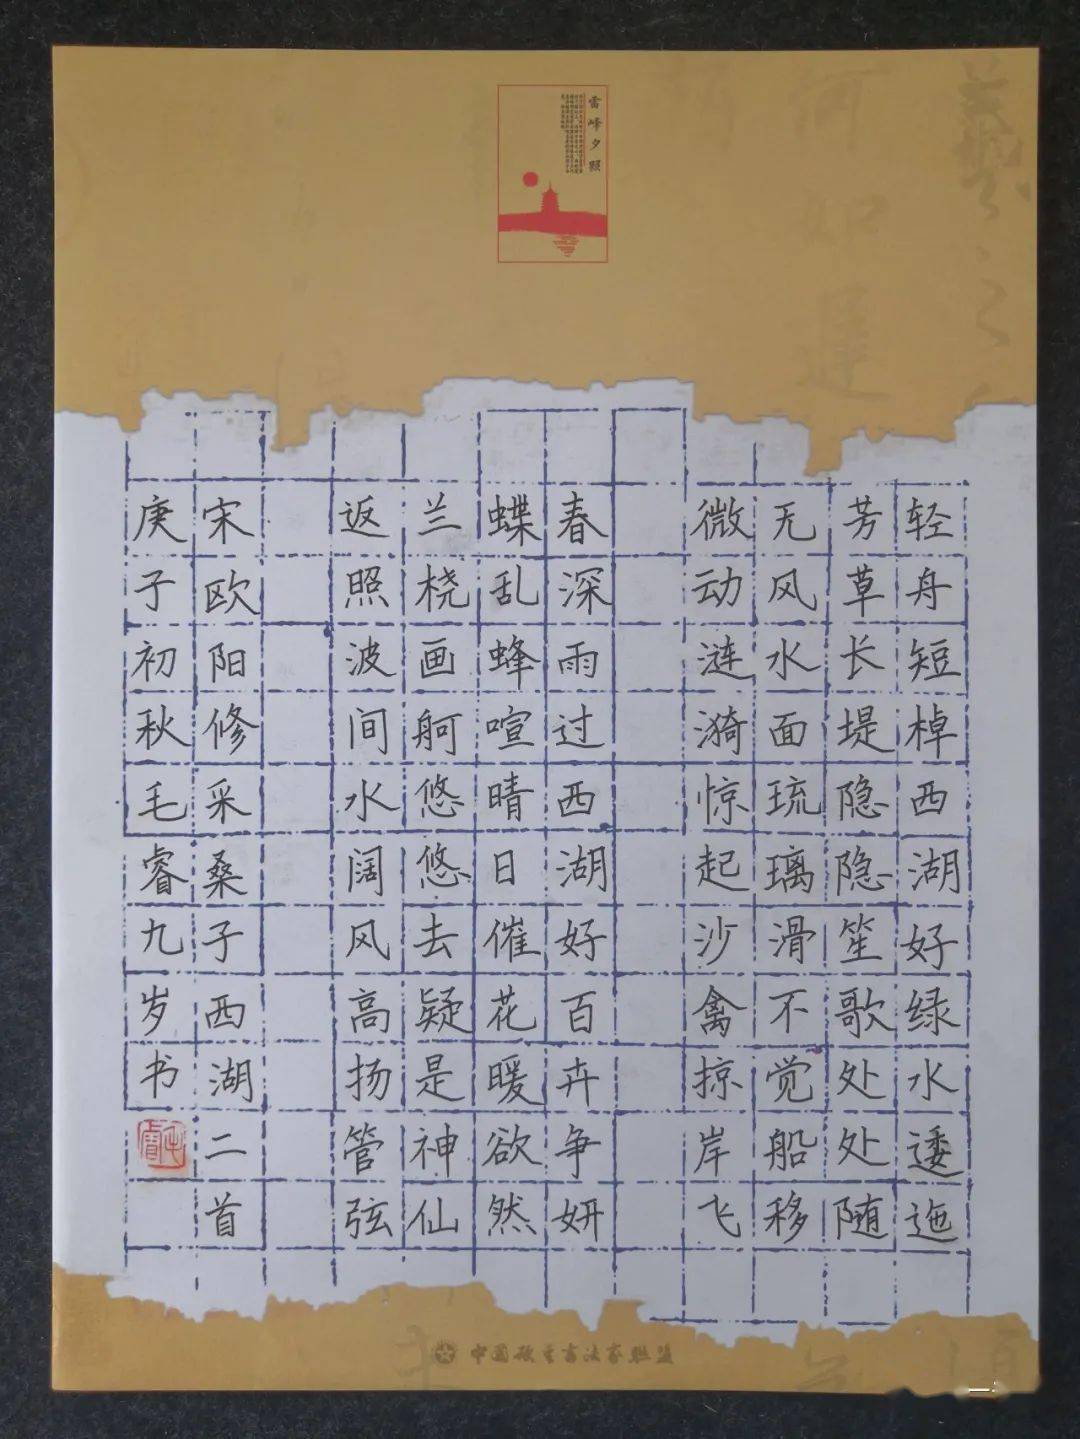 雷峰夕照
轻舟短棹西湖好绿水逶迤
芳草长堤隐隐笙歌处处随
无风水面琉璃滑不觉船移
微动涟漪惊起沙禽掠岸飞
春深雨过西湖好百卉争妍
蝶乱蜂喧晴日催花暖欲然
兰桡画舸悠悠去疑是神仙
返照波间水阔风高扬管弦
宋欧阳修采桑子西湖二首
庚子初秋毛睿九岁书
中国硬笔书法家联盟